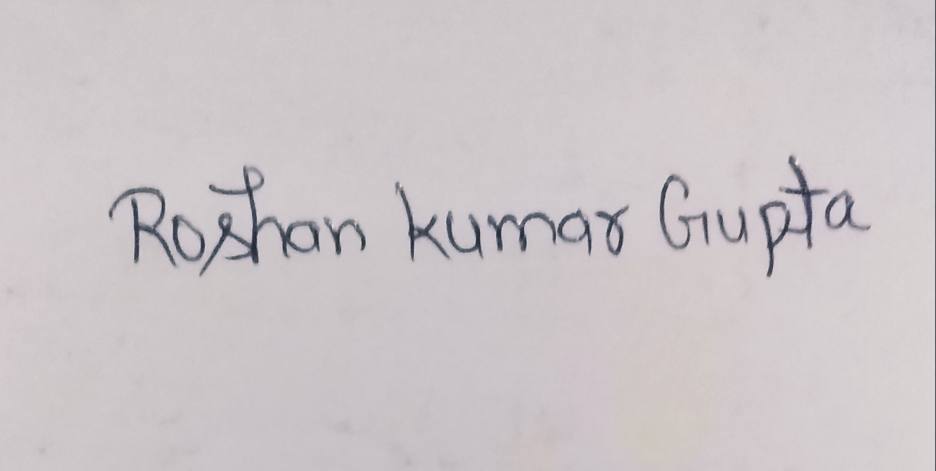 Roshan kumar Gupta